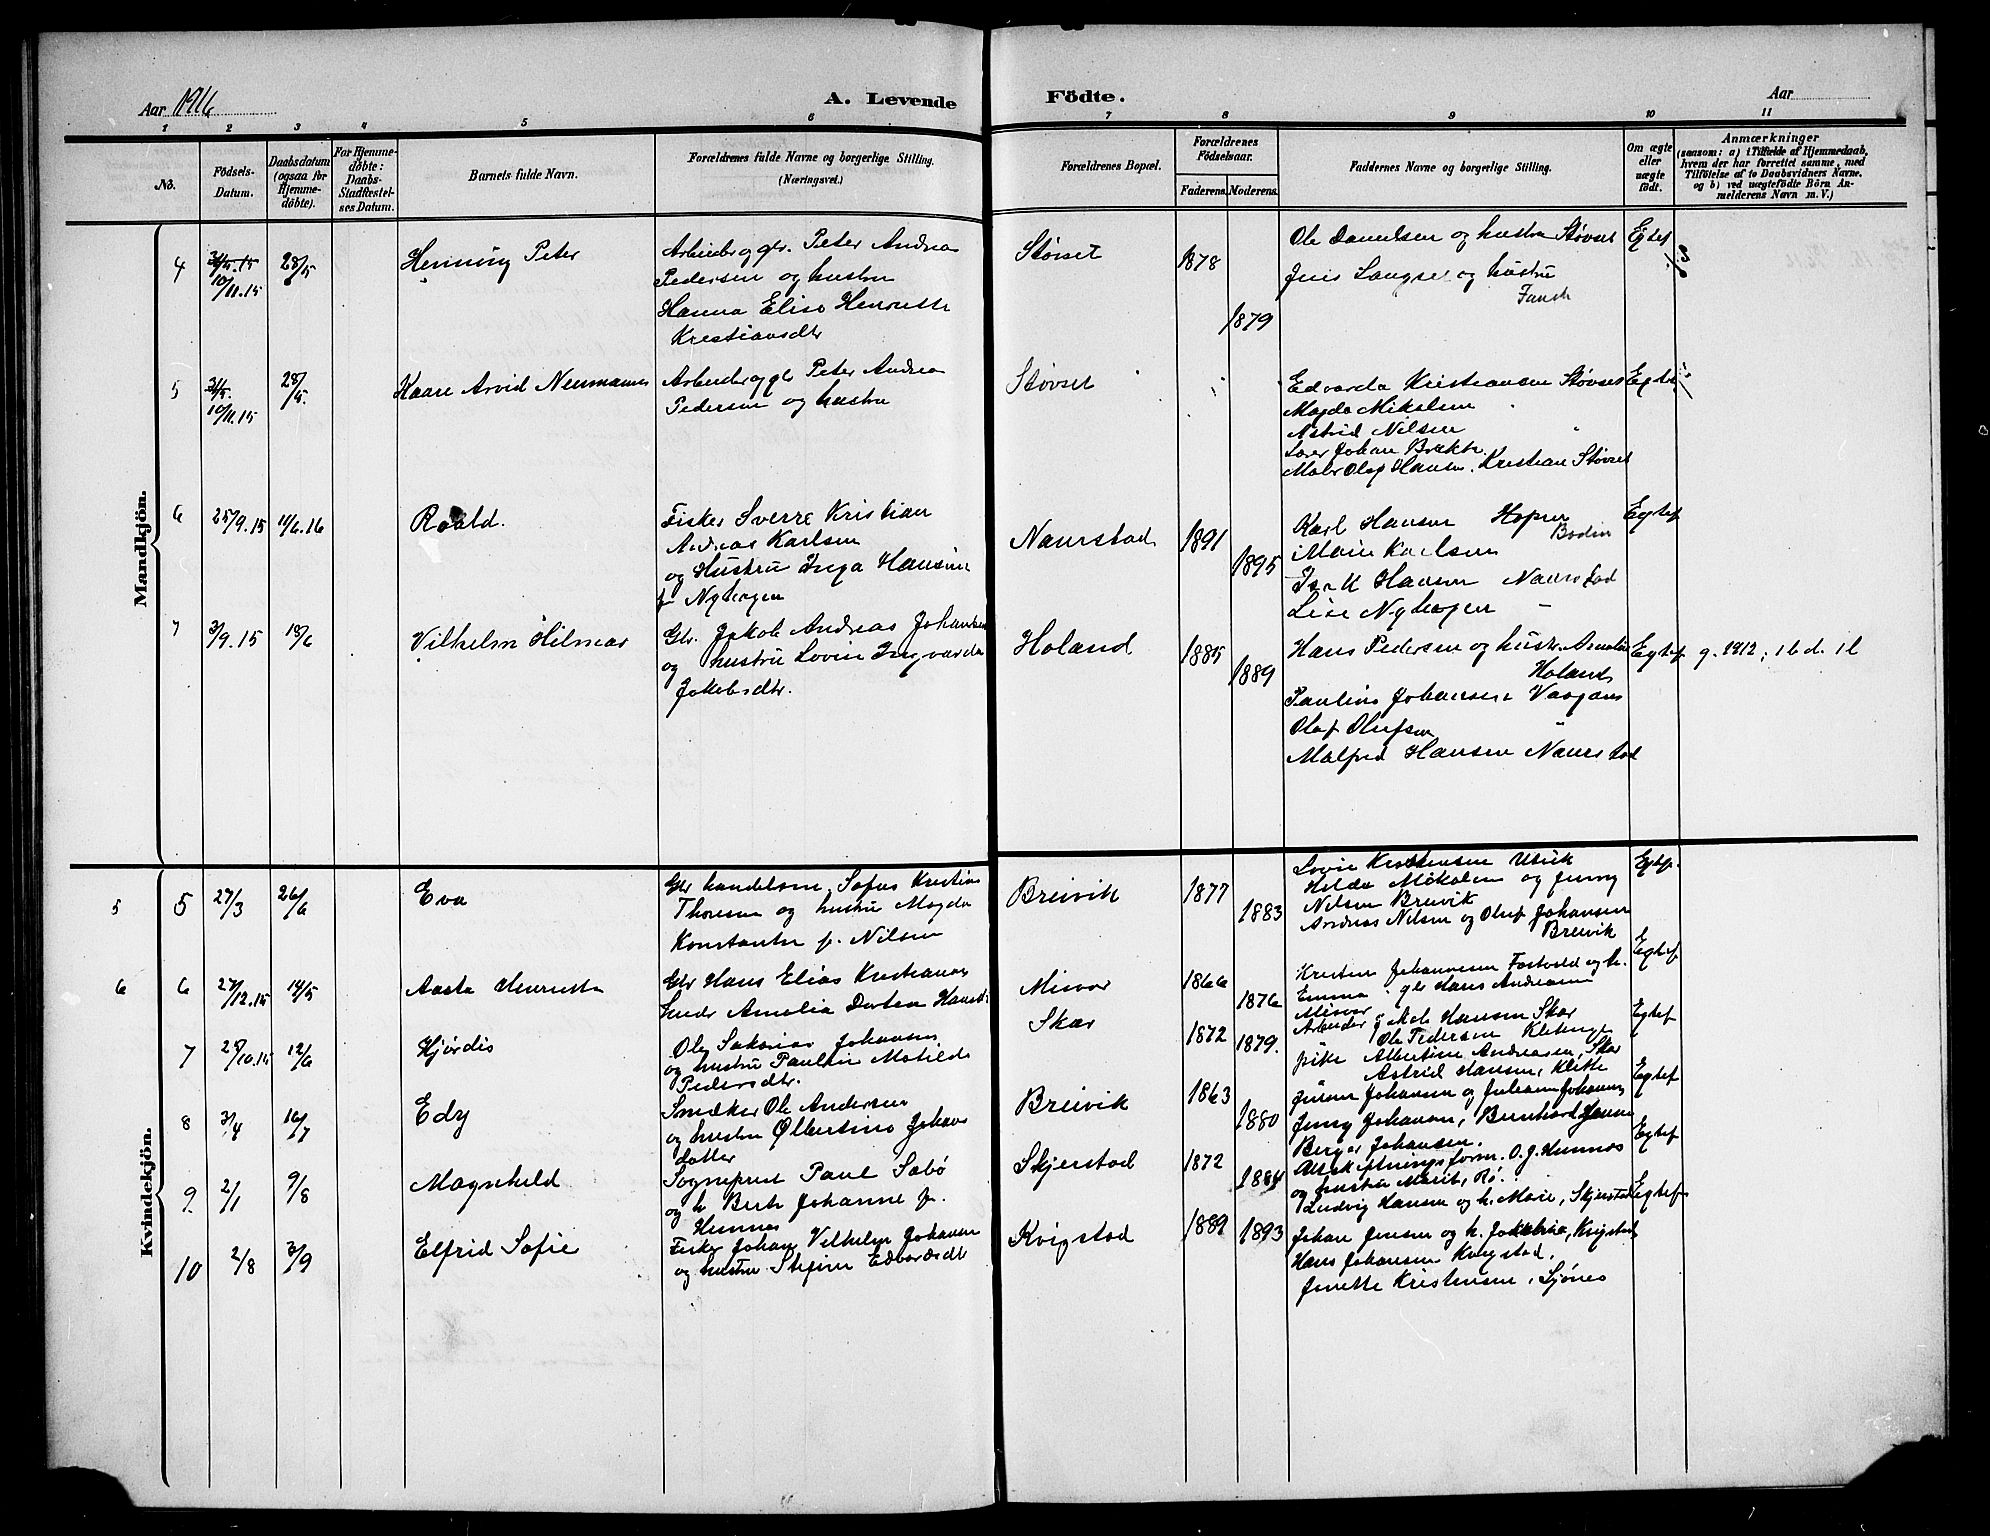 Aar 1916
A. Levende Födte.
Aar
1 2 3 4 5 6 7 8 9 10 11
No.
Födsels-Datum.
Daabsdatum (ogsaa for Hjemmedöbte).
For Hjemmedöbte: Daabs-Stadfæstelses Datum.
Barnets fulde Navn.
Forældrenes fulde Navne og borgerlige Stilling. (Næringsvei.)
Forældrenes Bopæl.
Forældrenes Födselsaar.
Faderens. Moderens.
Faddernes Navne og borgerlige Stilling.
Om ægte eller uægte födt.
Anmærkninger
(saasom: a) i Tilfælde af Hjemmedaab,
hvem der har forrettet samme, med
Tilföielse af to Daabsvidners Navne.
og b) ved uægtefödte Börn An-
melderens Navn m. V.)
Mandkjön.
4 10/11.15 28/5 Henning Peter
Arbeider og gbr. Peter Andrea
Pedersen og hustru
Hanna Elise Henriette
Kristiansdtr
Støvset 1878 1879
Ole Danielsen og hustru Støvset
Jens Langset og hustru
Egtef
5 10/11.15 28/5. Kaare Arvid Neumann
Arbeider og gbr Peter Andrea
Pedersen og hustru
Støvset
Edvarda Kristiansen Støvset
Magda Mikalsen
Astrid Nilsen
Lærer Johan Brækk
Maler Olaf Hansen. Kristian Støvset
Egtef
6 25/9.15 11/6.16 Roald.
Fisker Sverre Kristian
Andreas Karlsen
og Hustru Inga Hansine
f. Nyhagen
Naurstad 1891 1895
Karl Hansen Hopen
Bodin
Marie Karlsen
Isak Hansen Naurstad
Lise Nyhagen –
Egtef
7 3/9.15 18/6 Vilhelm Hilmar
Gbr. Jakob Andreas Johansen
og hustru Lovise Ingvarda
Jakobsdtr.
Holand 1885 1889
Hans Pedersen og hustr. Amalie
Holand
Pauline Johansen Vaagan
Olaf Olufsen
Malfred Hansen Naurstad
Egtef g. 1912; 1 b. d. 1 l
Kvindekjön.
5 5 27/3 26/6 Eva
Gbr handelsm. Sofus Kristian
Thoresen og hustru Magda
Konstanse f. Nilsen
Breivik 1877 1883
Lovise Kristensen Utvik
Hilda Mikalsen og Jenny
Nilsen Breivik
Andreas Nilsen og Oluf Johansen
Breivik
Egtef.
6 6 27/12.15 14/5 Aasta Henriette
Gbr Hans Elias Kristiansen
Amalia Dortea Hansd.
Misvær 1866 1876
Kristen Johannesen Fostvold og h.
Emma. gbr Hans Andreasen
Misvær
Egtef
7 28/10.15 12/6 Hjørdis
Ole Sakarias Johansen
og hustru Pauline Matilde
Pedersdtr.
Skar 1872 1879.
Arbeider Jakob Hansen Skar
Ole Pedersen
pike Albertine Andreasen, Skar
Astrid Hansen, Klette
Egtef
8 3/4 16/7 Edy
Snedker Ole Andersen
og hustru Olbertine Johans
datter
Breivik 1863 1880
Jørgen Johansen og Julianna Johansen
Jenny Johansen, Bernhard
Berger Johansen.
Egtef
9 2/1 9/8 Magnhild
Sogneprest Paul Sæbø
og h Berte Johanne f.
Humnes
Skjerstad 1872 1884
Utskiftningsform. O. J. Humnes
og hustru Marit, Rø.
Ludvig Hansen og h. Marie, Skjerstad
Egtef
10 2/8 3/9 Elfrid Sofie
Fisker Johan Vilhelm Johansen
og hustru Stefine Edvardsdt
Kvigstad 1889 1893
Johan Jensen og h. Jakobine, Kvigstad
Hans Johansen Kvigstad.
Jenette Kristensen, Ljønes
Egtef